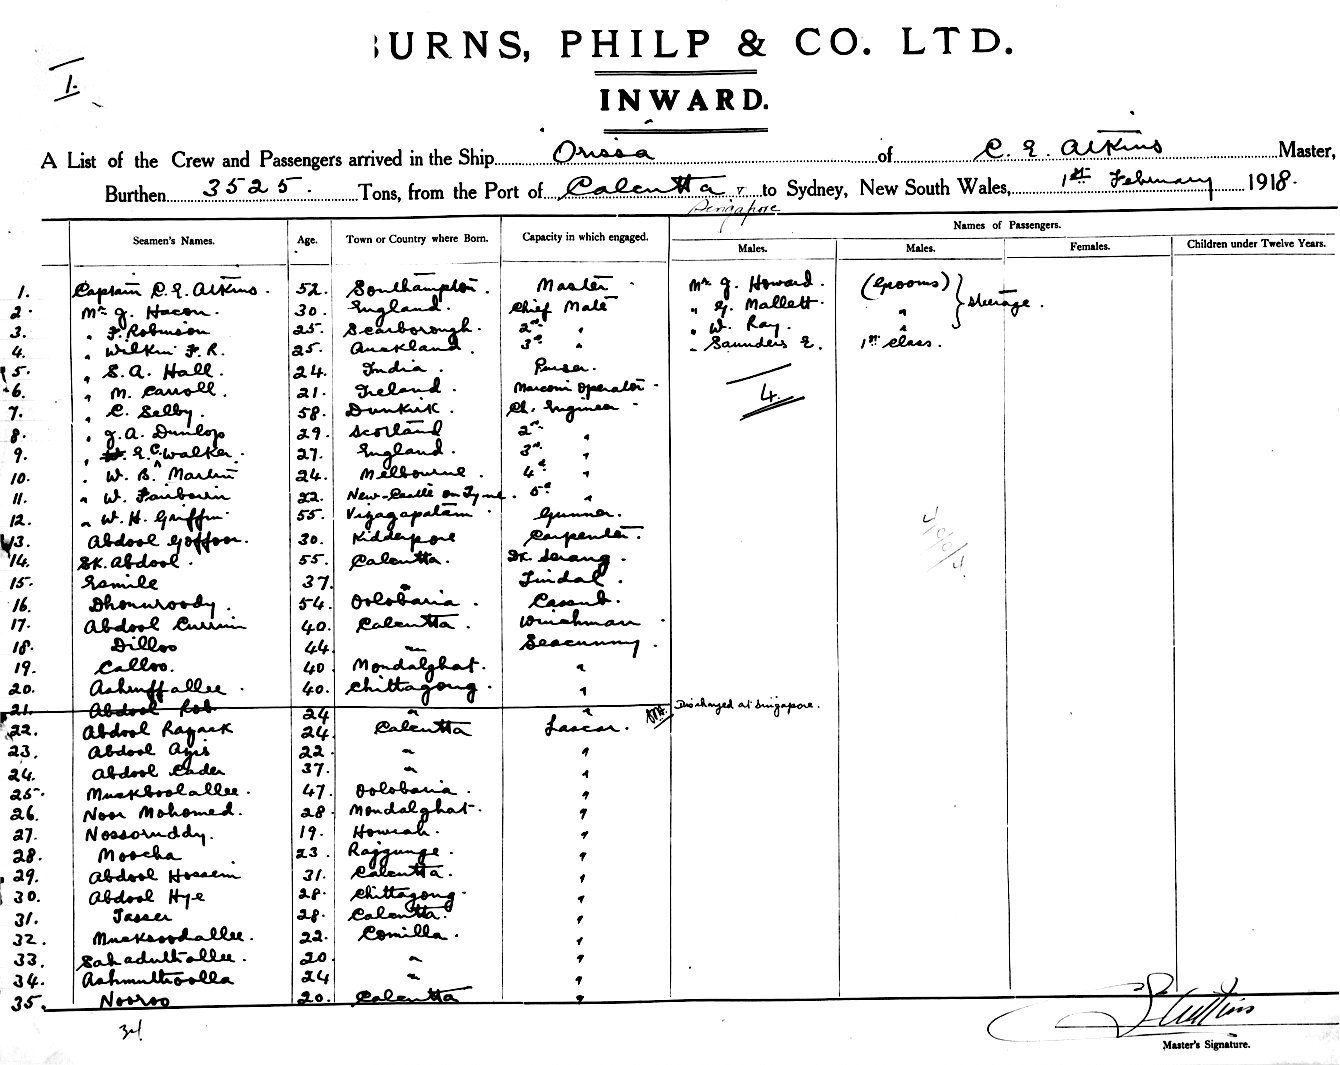 BURNS, PHILP & CO. LTD.
1.
INWARD.
A List of the Crew and Passengers arrived in the Ship Orissa of C. E. Atkins Master,
Burthen 3525. Tons, from the Port of Calcutta & to Sydney, New South Wales, 1st February 1918.
Singapore
Seamen's Names. Age. Town or Country where Born. Capacity in which engaged. Names of Passengers.
Males. Males. Females. Children under Twelve Years.
1. Captain C. E. Atkins. 52. Southampton. Master Mr J. Howard. (Grooms)
2. Mr J. Hacon. 30. England. Chief Mate " G. Mallett. " steerage.
3. " F. Robinson 25. Scarborough. 2nd " " W. Ray. "
4. " Wilkin F. R. 25. Auckland. 3rd " " Saunders E. 1st Class.
5. " S. A. Hall. 24. India. Purser.
6. " M. Carroll. 21. Ireland. Marconi Operator 4.
7. " C. Selby. 58. Dunkirk. Ch. Engineer
8. " J. A. Dunlop 29. Scotland 2nd "
9. " E. C. Walker. 27. England. 3rd "
10. " W. B. Martin 24. Melbourne. 4th "
11. " W. Fairbairn 22. New-Castle on Tyne. 5th "
12. " W. H. Griffin 55. Vizagapatam. Gunner.
13. Abdool Goffoor. 30. Kidderpore Carpenter.
14. SK. Abdool. 55. Calcutta. Dk. Serang.
15. Esmile 37. " Tindal.
16. Dhonuroody. 54. Oolobaria. Cassub.
17. Abdool Currim 40. Calcutta. Winchman
18. Dilloo 44. " Seacunny.
19. Calloo. 40 Mondalghat. "
20. Ashruffallee. 40. Chittagong. "
21. Abdool Rob 24 " " Discharged at Singapore.
22. Abdool Razack 24 Calcutta Lascar.
23. Abdool Azis 22 " "
24. Abdool Cader 37. " "
25. Muckboolallee. 47. Oolobaria. "
26. Noor Mohomed. 28 Mondalghat. "
27. Nossoruddy. 19. Howrah. "
28. Moocha 23. Rajgunge. "
29. Abdool Hossein 31. Calcutta. "
30. Abdool Hye 28. Chittagong. "
31. Jasser 28. Calcutta. "
32. Mucksoodallee. 22. Comilla. "
33. Sahadultallee. 20. " "
34. Ashmultoolla 24 " "
35. Nooroo 20. Calcutta "
34
C. E. Atkins
Master's Signature.